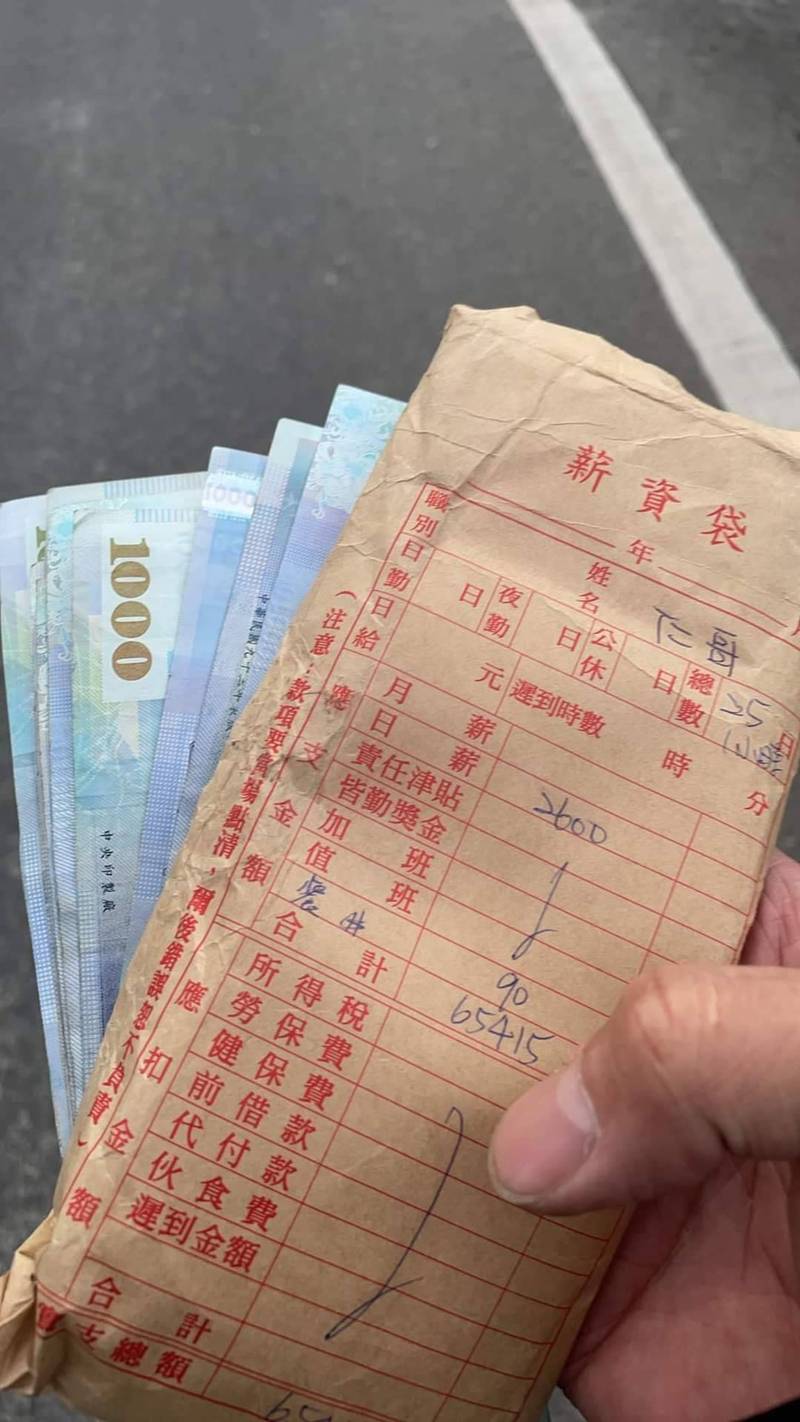 薪資袋
年
職別
姓名
仁哥
日勤
日
夜勤
日
公休
日
總數
25
日
1小時
日給
元
遲到時數
時
分
應支金額
月薪
日薪
2600
責任津貼
皆勤獎金
加班
值班
90
合計
65415
應扣金額
所得稅
勞保費
健保費
前借款
代付款
伙食費
遲到金額
合計
實支總額
(注意:款項要當場點清,爾後錯誤恕不負責)
1000
1000
中央印製廠